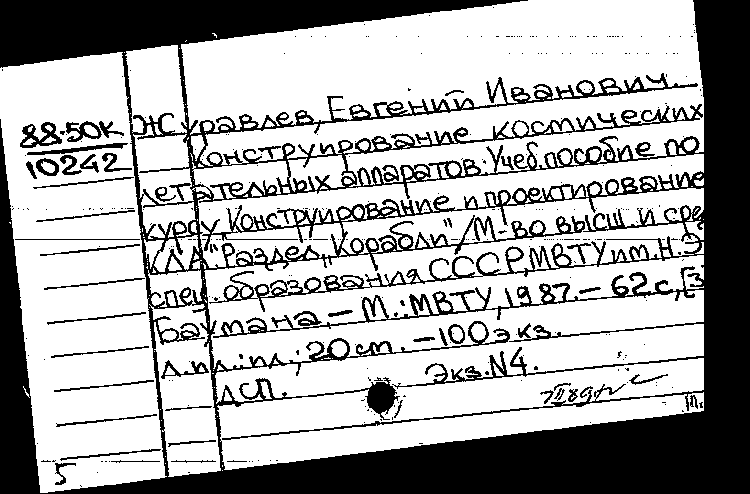 88-50К
10242
Журавлев, Евгений Иванович.
Конструирование космических
летательных аппаратов: Учеб. пособие по
курсу „Конструирование и проектирование
КЛА". Раздел „Корабли"/М-во высш. и сред
спец. образования СССР, МВТУ им. Н.Э
Баумана. – М.: МВТУ, 1987. – 62 с, [3]
л. ил.: ил.; 20 см. – 100 экз.
ДСП.
Экз. N4.
5